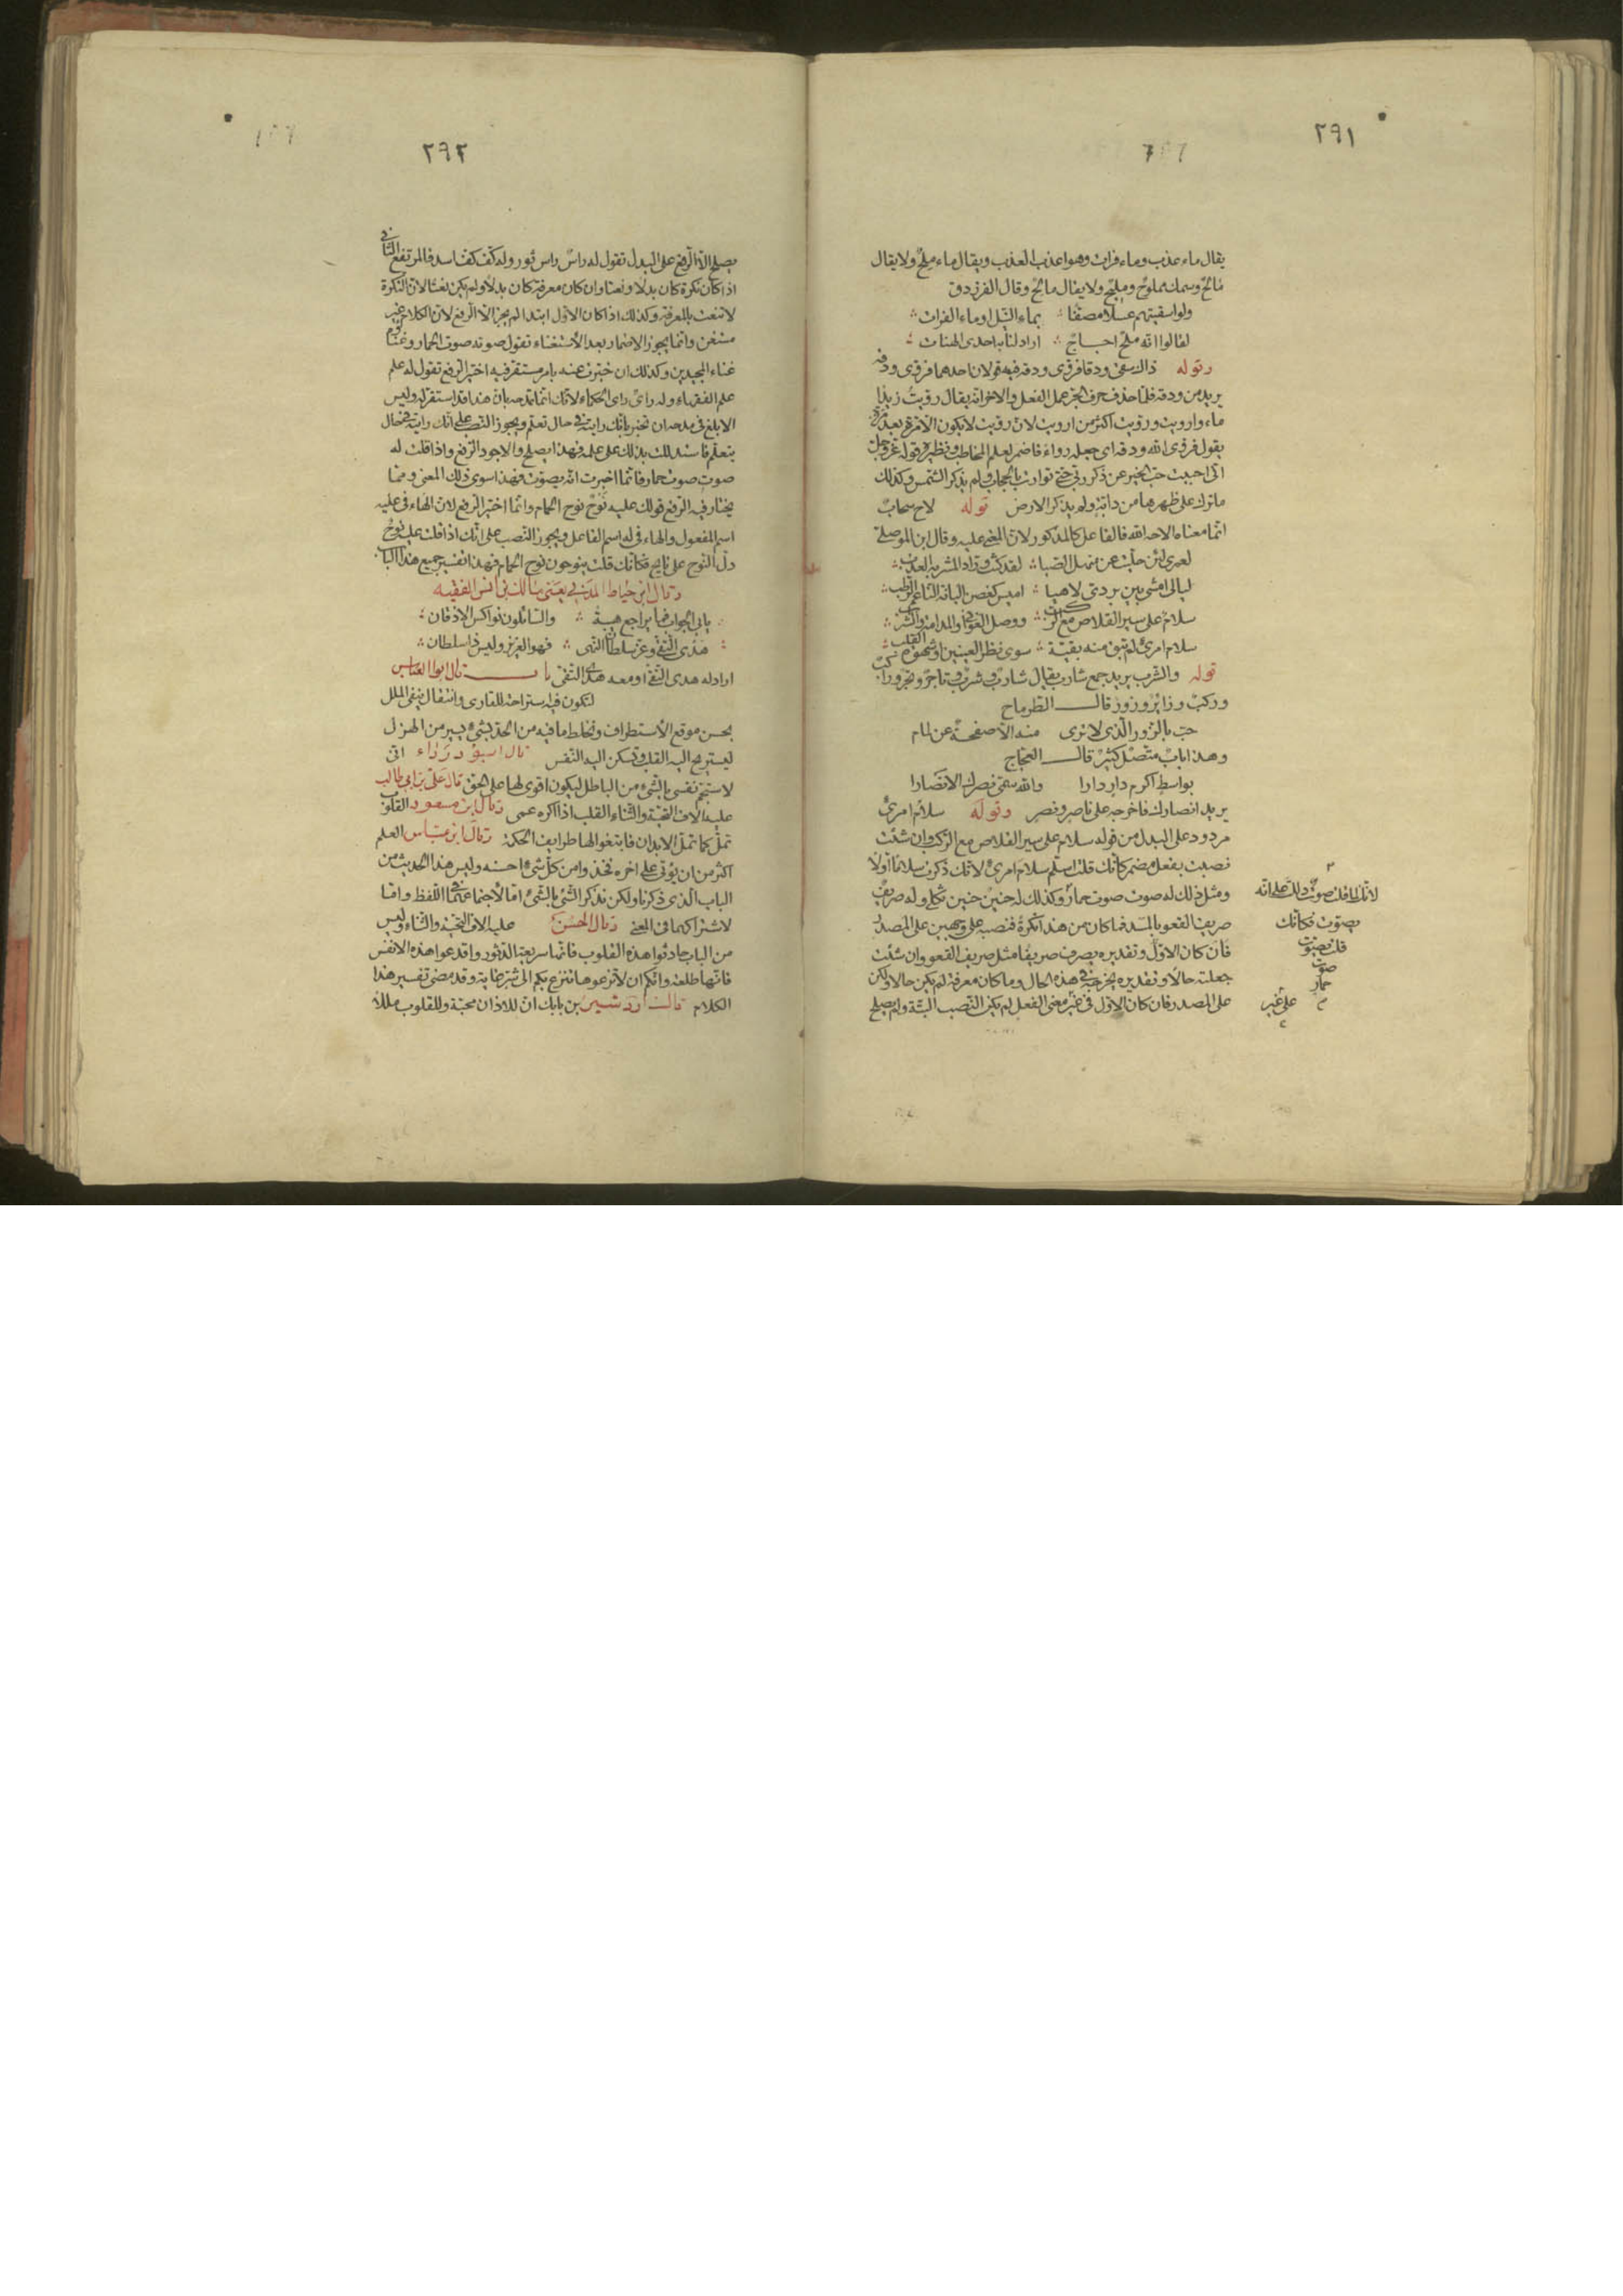 ٢٩١
يقال ماء عذب وماء فرات وهو اعذب العذب ويقال ماء ملح ولا يقال
مالح وسمك مملوح ومليح ولا يقال مالح وقال الفرزدق
ولو اسقيتهم عسلا مصفا بماء النيل او ماء الفرات
لقالوا انه ملح اجاج اراد لنا به احدى الهنات
وقوله ذاك سقى ودقا فروى ودقه فيه قولان احدهما فروى ودقه
يريد من ودقه فلما حذف حرف الجر عمل الفعل والاخر انه يقال رويت زيدا
ماء وارويت ورويت اكثر من ارويت لان رويت لا يكون الا مرة بعد مرة
يقول فروى الله ودقه اى جعله رواء فاضمر لعلم المخاطب ونظيره قوله عز وجل
انى احببت حب الخير عن ذكر ربى حتى توارت بالحجاب ولم يذكر الشمس وكذلك
ما ترك على ظهرها من دابة ولم يذكر الارض قوله لاح سحاب
انما معناه الاحه الله فالفاعل كالمذكور لان المعنى عليه وقال ابن الموصلى
لعمرى لئن حلئت عن منهل الصبا لقد كنت ورادا لمشربه العذب
ليالى امشى بين بردى لاهيا اميس كغصن البانة الناعم الرطب
سلام على سير القلاص مع الركب ووصل الغوانى والمدامة والشرب
سلام امرئ لم تبق منه بقية سوى نظر العينين او شهوة القلب
قوله والشرب يريد جمع شارب يقال شارب وشرب وتاجر وتجر وراكب
وركب وزائر وزور قال الطرماح
حب بالزور الذى لا يرى منه الا صفحة عن لمام
وهذا باب متصل كثير قال العجاج
بواسط اكرم دار دارا والله سمى نصرك الانصارا
يريد انصارك فاخرجه على ناصر ونصر وقوله سلام امرئ
مردود على البدل من قوله سلام على سير القلاص مع الركب وان شئت
نصبت بفعل مضمر كانك قلت اسلم سلام امرئ لانك ذكرت سلاما اولا
ومثل ذلك له صوت صوت حمار وكذلك له حنين حنين ثكلى وله صريف
صريف القعو بالمسد فما كان من هذا نكرة فنصبه على وجهين على المصدر
فان كان الاول وتقديره يصرف صريفا مثل صريف القعو وان شئت
جعلته حالا وتقديره يخرجه فى هذه الحال وما كان معرفة لم يكن حالا ولكن
على المصدر فان كان الاول فى غير معنى الفعل لم يكن النصب البتة ولم يصلح
لانك لما قلت صوت دلك على انه
يصوت فكانك
قلت يصوت
صوت
حمار
على غير
٢٩٢
يصلح الا الرفع على البدل تقول له راس راس ثور وله كف كف اسد فالمرتفع الثانى
اذا كان نكرة كان بدلا ونعتا وان كان معرفة كان بدلا ولم يكن نعتا لان النكرة
لا تنعت بالمعرفة وكذلك اذا كان الاول ابتدا لم يجز الا الرفع لان الكلام غير
مستغن وانما يجوز الاضمار بعد الاستغناء تقول صوته صوت الحمار وغناؤه
غناء المجيدين وكذلك ان خبرت عنه بامر مستقر فيه اختير الرفع تقول له علم
علم الفقهاء وله راى راى الحكماء لانك انما تمدحه بان هذا قد استقر له وليس
الابلغ فى مدحه ان تخبر بانك رايته فى حال تعلم ويجوز النصب على انك رايته فى حال
يتعلم فاستدللت بذلك على علمه فهذا يصلح والاجود الرفع واذا قلت له
صوت صوت حمار فانما اخبرت انه يصوت فهذا سوى ذلك المعنى ومما
يختار فيه الرفع قولك عليه نوح نوح الحمام وانما اختير الرفع لان الهاء فى عليه
اسم المفعول والهاء فى له اسم الفاعل ويجوز النصب على انك اذا قلت عليه نوح
دل النوح على نائح فكانك قلت ينوحون نوح الحمام فهذا تفسير جميع هذا الباب
وقال ابن خياط المدينى يعنى مالك بن انس الفقيه
يابى الجواب فما يراجع هيبة والسائلون نواكس الاذقان
هدى التقى وعز سلطان النهى فهو العزيز وليس ذا سلطان
اراد له هدى التقى او معه هدى التقى باب قال ابو العباس
لتكون فيه استراحة للقارى وانتقال ينفى الملل
يحسن موقع الاستطراف ونخلط ما فيه من الجد بشىء يسير من الهزل
ليستريح اليه القلب وتسكن اليه النفس قال ابو درداء انى
لاستجم نفسى بالشىء من الباطل ليكون اقوى لها على الحق قال على بن ابى طالب
عليه الاف التحية والثناء القلب اذا اكره عمى وقال ابن مسعود القلوب
تمل كما تمل الابدان فابتغوا لها طرايف الحكمة وقال ابن عباس العلم
اكثر من ان يؤتى على اخره فخذوا من كل شىء احسنه وليس هذا الحديث من
الباب الذى ذكرنا ولكن نذكر الشىء بالشىء اما لاجتماعهما فى اللفظ واما
لاشتراكهما فى المعنى وقال الحسن عليه الاف التحية والثناء وليس
من الباب حادثوا هذه القلوب فانها سريعة الدثور واقدعوا هذه الانفس
فانها طلعة وانكم ان لا تزعوها تنزع بكم الى شر غاية وقد مضى تفسير هذا
الكلام قال اردشير بن بابك ان للاذان مجة وللقلوب مللا